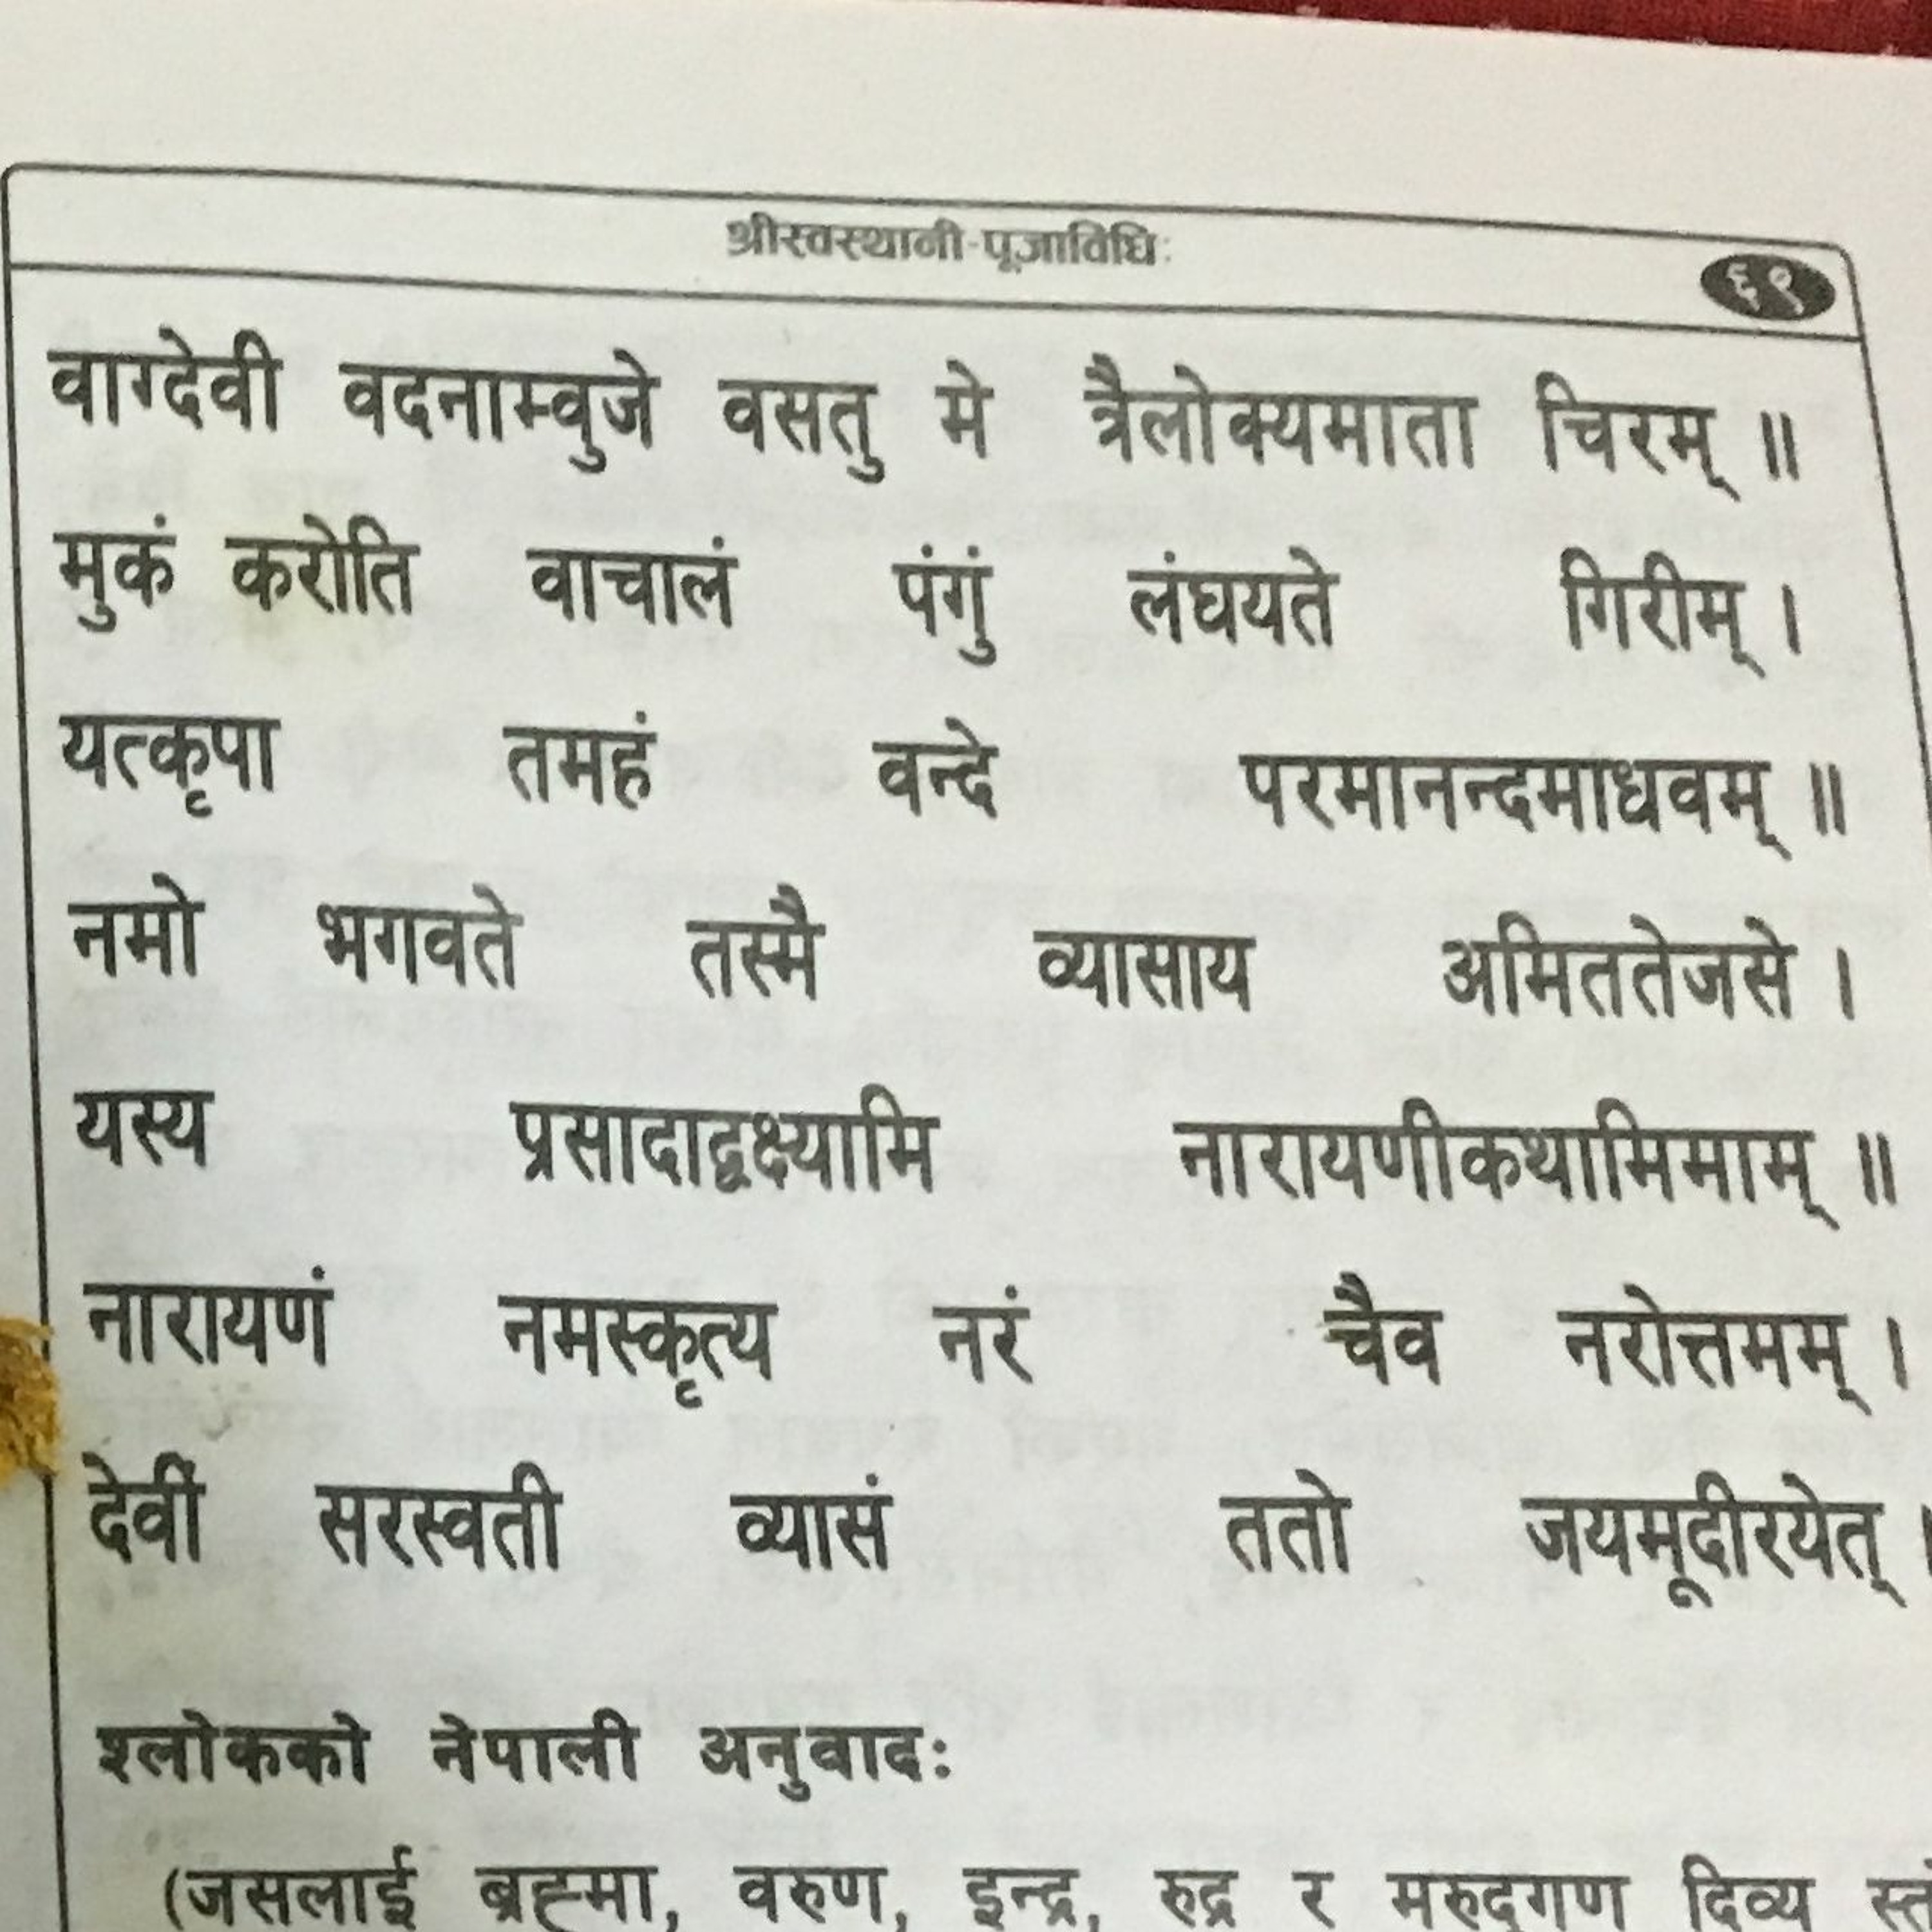 श्रीस्वस्थानी-पूजाविधिः ६९
वाग्देवी वदनाम्वुजे वसतु मे त्रैलोक्यमाता चिरम् ॥
मुकं करोति वाचालं पंगुं लंघयते गिरीम् ।
यत्कृपा तमहं वन्दे परमानन्दमाधवम् ॥
नमो भगवते तस्मै व्यासाय अमिततेजसे ।
यस्य प्रसादाद्वक्ष्यामि नारायणीकथामिमाम् ॥
नारायणं नमस्कृत्य नरं चैव नरोत्तमम् ।
देवीं सरस्वती व्यासं ततो जयमूदीरयेत् ।
श्लोकको नेपाली अनुवादः
(जसलाई ब्रह्मा, वरुण, इन्द्र, रुद्र र मरुद्गण दिव्य